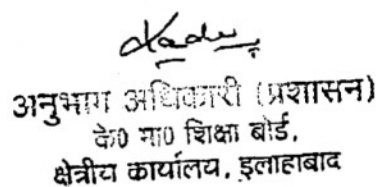 अनुभाग अधिकारी (प्रशासन)
के0 मा0 शिक्षा बोर्ड,
क्षेत्रीय कार्यालय, इलाहाबाद